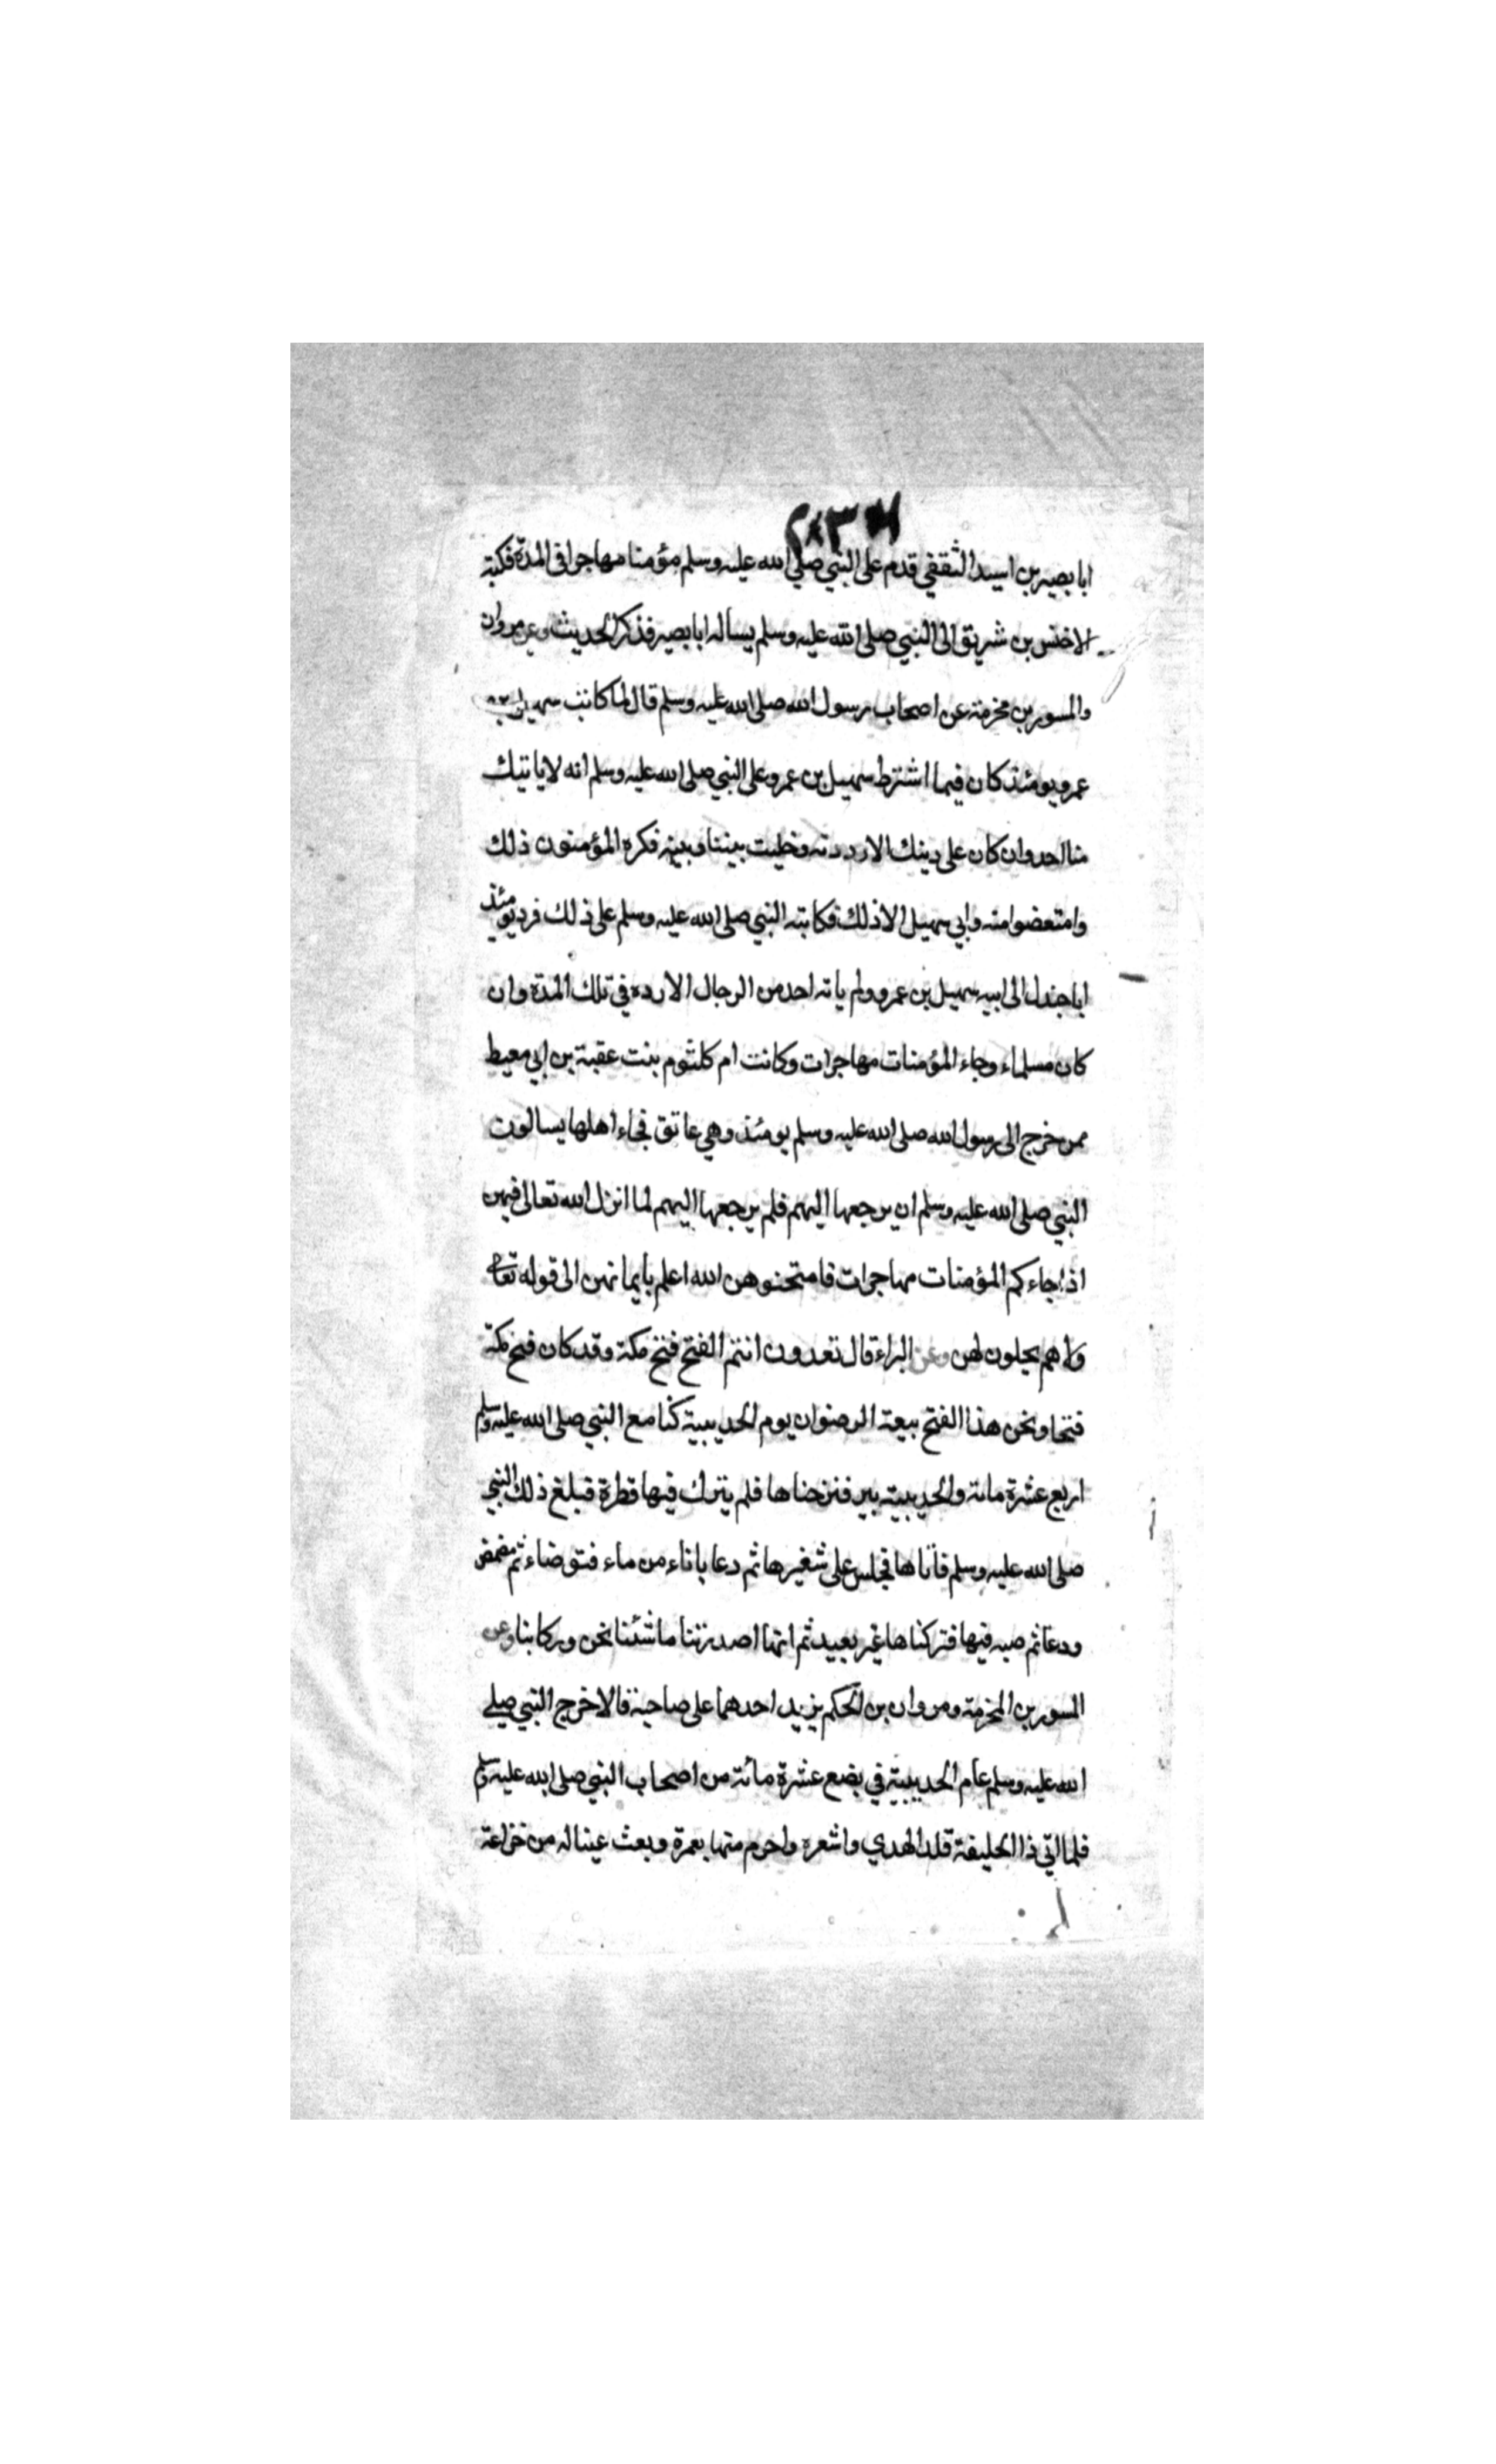 ابا بصير بن اسيد الثقفي قدم على النبي صلى الله عليه وسلم مؤمنا مهاجرا في المدة فكتب
الاخنس بن شريق الى النبي صلى الله عليه وسلم يساله ابا بصير فذكر الحديث وعن مروان
والمسور بن مخرمة عن اصحاب رسول الله صلى الله عليه وسلم قال لما كاتب سهيل بن
عمرو يومئذ كان فيما اشترط سهيل بن عمرو على النبي صلى الله عليه وسلم انه لا ياتيك
منا احد وان كان على دينك الا رددته وخليت بيننا وبينه فكره المؤمنون ذلك
وامتعضوا منه وابي سهيل الا ذلك فكاتبه النبي صلى الله عليه وسلم على ذلك فرد يومئذ
ابا جندل الى ابيه سهيل بن عمرو ولم ياته احد من الرجال الا رده في تلك المدة وان
كان مسلماء وجاء المؤمنات مهاجرات وكانت ام كلثوم بنت عقبة بن ابي معيط
ممن خرج الى رسول الله صلى الله عليه وسلم يومئذ وهي عاتق فجاء اهلها يسالون
النبي صلى الله عليه وسلم ان يرجعها اليهم فلم يرجعها اليهم لما انزل الله تعالى فيهن
اذا جاءكم المؤمنات مهاجرات فامتحنوهن الله اعلم بأيمانهن الى قوله تعالى
ولا هم يحلون لهن وعن البراء قال تعدون انتم الفتح فتح مكة وقد كان فتح مكة
فتحا ونحن هذا الفتح بيعة الرضوان يوم الحديبية كنا مع النبي صلى الله عليه وسلم
اربع عشرة مائة والحديبية بير فنزحناها فلم يترك فيها قطرة فبلغ ذلك النبي
صلى الله عليه وسلم فأتاها فجلس على شغيرها ثم دعا باناء من ماء فتوضاء ثم مضمض
ودعا ثم صبه فيها فتركناها غير بعيد ثم انها اصدرتنا ما شئنا نحن وركابنا وعن
المسور بن المخرمة ومروان بن الحكم يزيد احدهما على صاحبه قالا خرج النبي صلى
الله عليه وسلم عام الحديبية في بضع عشرة مائة من اصحاب النبي صلى الله عليه وسلم
فلما اتي ذا الحليفة قلد الهدي واشعره واحرم منها بعمرة وبعث عينا له من خزاعة